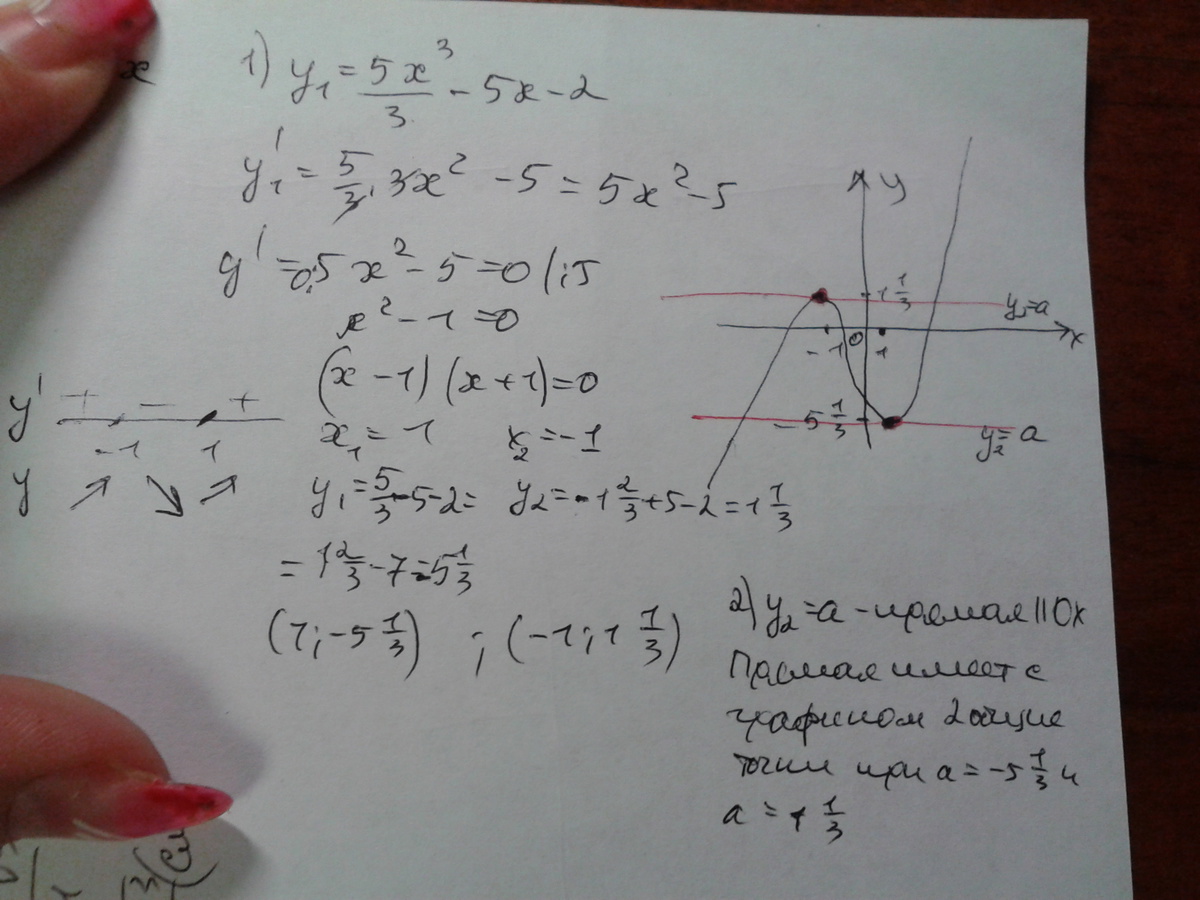 x
1) y₁ = 5x³/3 - 5x - 2
y₁' = 5/3 · 3x² - 5 = 5x² - 5
y' = 0; 5x² - 5 = 0 | : 5
x² - 1 = 0
(x - 1)(x + 1) = 0
x₁ = 1 x₂ = -1
y₁ = 5/3 - 5 - 2 = y₂ = -1 2/3 + 5 - 2 = +1 1/3
= 1 2/3 - 7 = -5 1/3
(1; -5 1/3) ; (-1; 1 1/3)
y' + - + 
-1 1
y ↗ ↘ ↗
y
+1 1/3
y₁=a
x
-1 0 1
-5 1/3
y₂=a
2) y₂ = a - прямая || Ox
Прямая имеет с
графиком 2 общие
точки при a = -5 1/3 и
a = +1 1/3